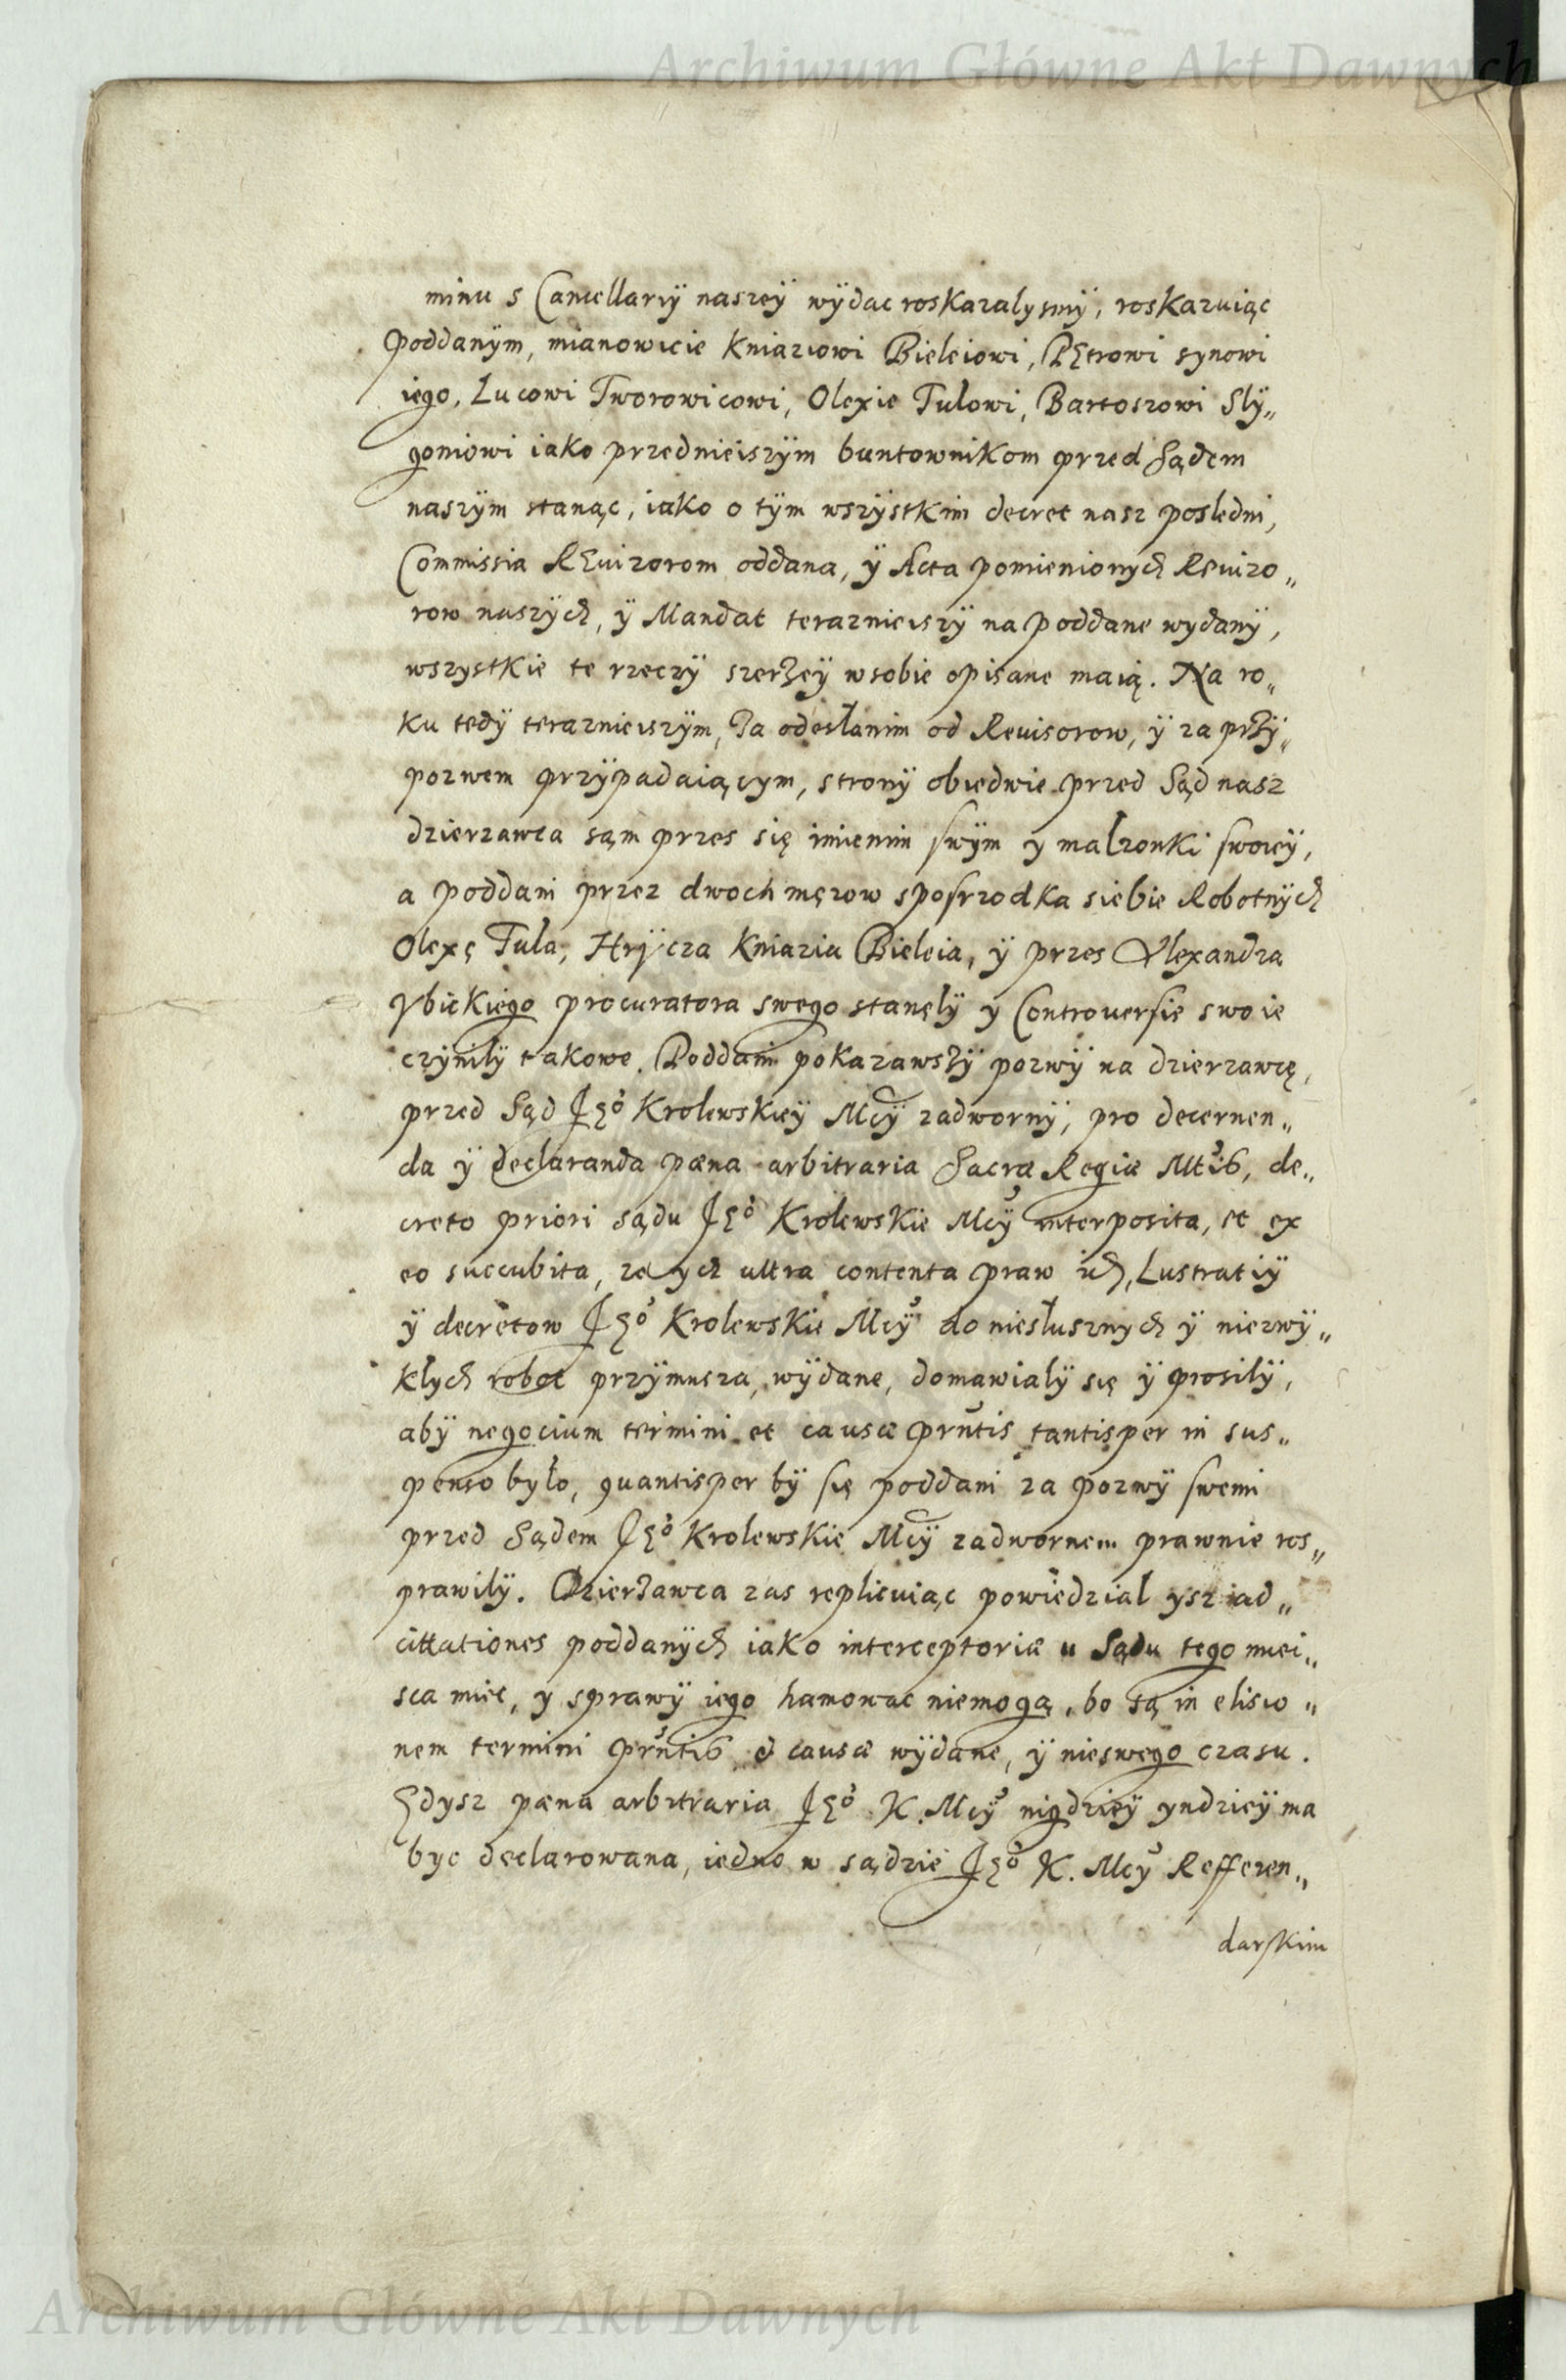 Archiwum Główne Akt Dawnych
minu s Cancellariÿ naszeÿ wÿdac roskazalysmÿ, roskazuiąc
Poddanÿm, mianowicie Kniaziowi Bieleiowi, PEtrowi synowi
iego, Lucowi Tworowicowi, Olexie Tulowi, Bartoszowi Slÿ„
goniowi iako przednieiszÿm buntownikom przed Sądem
naszÿm stanąc, iako o tÿm wszÿstkim decret nasz posledni,
Commissia REuizorom oddana, ÿ Acta pomienionych Reuizo„
row naszÿch, ÿ Mandat teraznieiszÿ na poddane wydanÿ,
wszystkie te rzeczÿ szerzeÿ w sobie opisane maią. Na ro„
ku tedÿ teraznieiszÿm, za odesłanim od Reuisorow, ÿ za przÿ„
pozwem przÿpadaiącym, stronÿ obiedwie przed Sąd nasz
dzierzawca sąm przes się imienim swÿm y malzonki swoieÿ,
a poddani przez dwoch męzow sposrzodka siebie Robotnÿch
Olexę Tula, Hrÿcza Kniazia Bieleia, ÿ przes Alexandra
Ybickiego procuratora swego stanęlÿ y Controuersie swoie
czÿnilÿ takowe. Poddani pokazawszÿ pozwÿ na dzierzawcę,
przed Sąd Jeº Krolewskieÿ Mcÿ zadwornÿ, pro decernen„
da ÿ declaranda pæna arbitraria Sacræ Regiæ Mtis, de„
creto priori sądu Jeº Krolewskie Mcÿ interposita, et ex
eo succubita, ze ych ultra contenta praw ich, Lustratiÿ
ÿ decretow Jeº Krolewskie Mcÿ do niesłusznych ÿ niezwÿ„
klych robot przÿmusza, wÿdane, domawialÿ się ÿ prosilÿ,
abÿ negocium termini et causæ prntis tantisper in sus„
penso było, quantisper bÿ się poddani za pozwÿ swemi
przed Sądem Jeº Krolewskie Mcÿ zadwornem prawnie ros„
prawilÿ. Dzierzawca zas replicuiąc powiedzial ysz iad„
cittationes poddanÿch iako interceptoriæ u Sądu tego miei„
sca miec, y sprawÿ iego hamowac niemogą, bo są in elisio„
nem termini prntis et causæ wÿdane, ÿ nieswego czasu.
Gdysz pæna arbitraria Jeº K. Mcÿ nigdzieÿ yndzieÿ ma
byc declarowana, iedno w sądzie Jeº K. Mcÿ Refferen„
darskim
Archiwum Główne Akt Dawnych